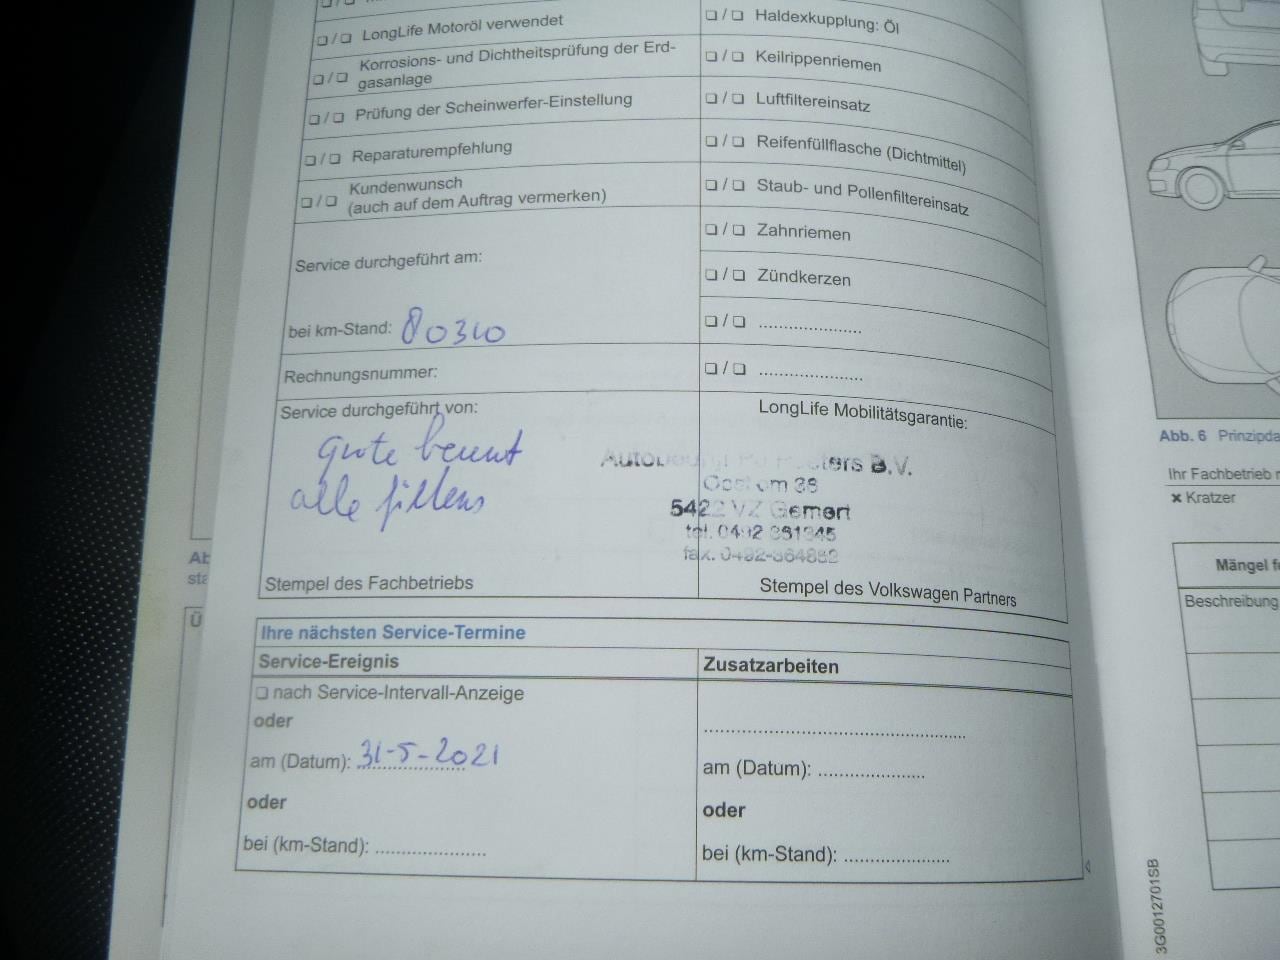 ❏ / ❏ LongLife Motoröl verwendet
❏ / ❏ Korrosions- und Dichtheitsprüfung der Erd-
gasanlage
❏ / ❏ Prüfung der Scheinwerfer-Einstellung
❏ / ❏ Reparaturempfehlung
❏ / ❏ Kundenwunsch
(auch auf dem Auftrag vermerken)
Service durchgeführt am:
bei km-Stand: 80310
Rechnungsnummer:
Service durchgeführt von:
grote beurt
alle filters
Stempel des Fachbetriebs
❏ / ❏ Haldexkupplung: Öl
❏ / ❏ Keilrippenriemen
❏ / ❏ Luftfiltereinsatz
❏ / ❏ Reifenfüllflasche (Dichtmittel)
❏ / ❏ Staub- und Pollenfiltereinsatz
❏ / ❏ Zahnriemen
❏ / ❏ Zündkerzen
❏ / ❏ .....................
❏ / ❏ .....................
LongLife Mobilitätsgarantie:
B.V.
38
5422 VZ Gemert
tel. 0492 361345
fax. 0492-364882
Stempel des Volkswagen Partners
Ihre nächsten Service-Termine
Service-Ereignis
❏ nach Service-Intervall-Anzeige
oder
am (Datum): 31-5-2021
oder
bei (km-Stand): .....................
Zusatzarbeiten
.....................
am (Datum): .....................
oder
bei (km-Stand): .....................
Abb. 6 Prinzipda
Ihr Fachbetrieb
✖ Kratzer
Mängel
Beschreibung
3G0012701SB